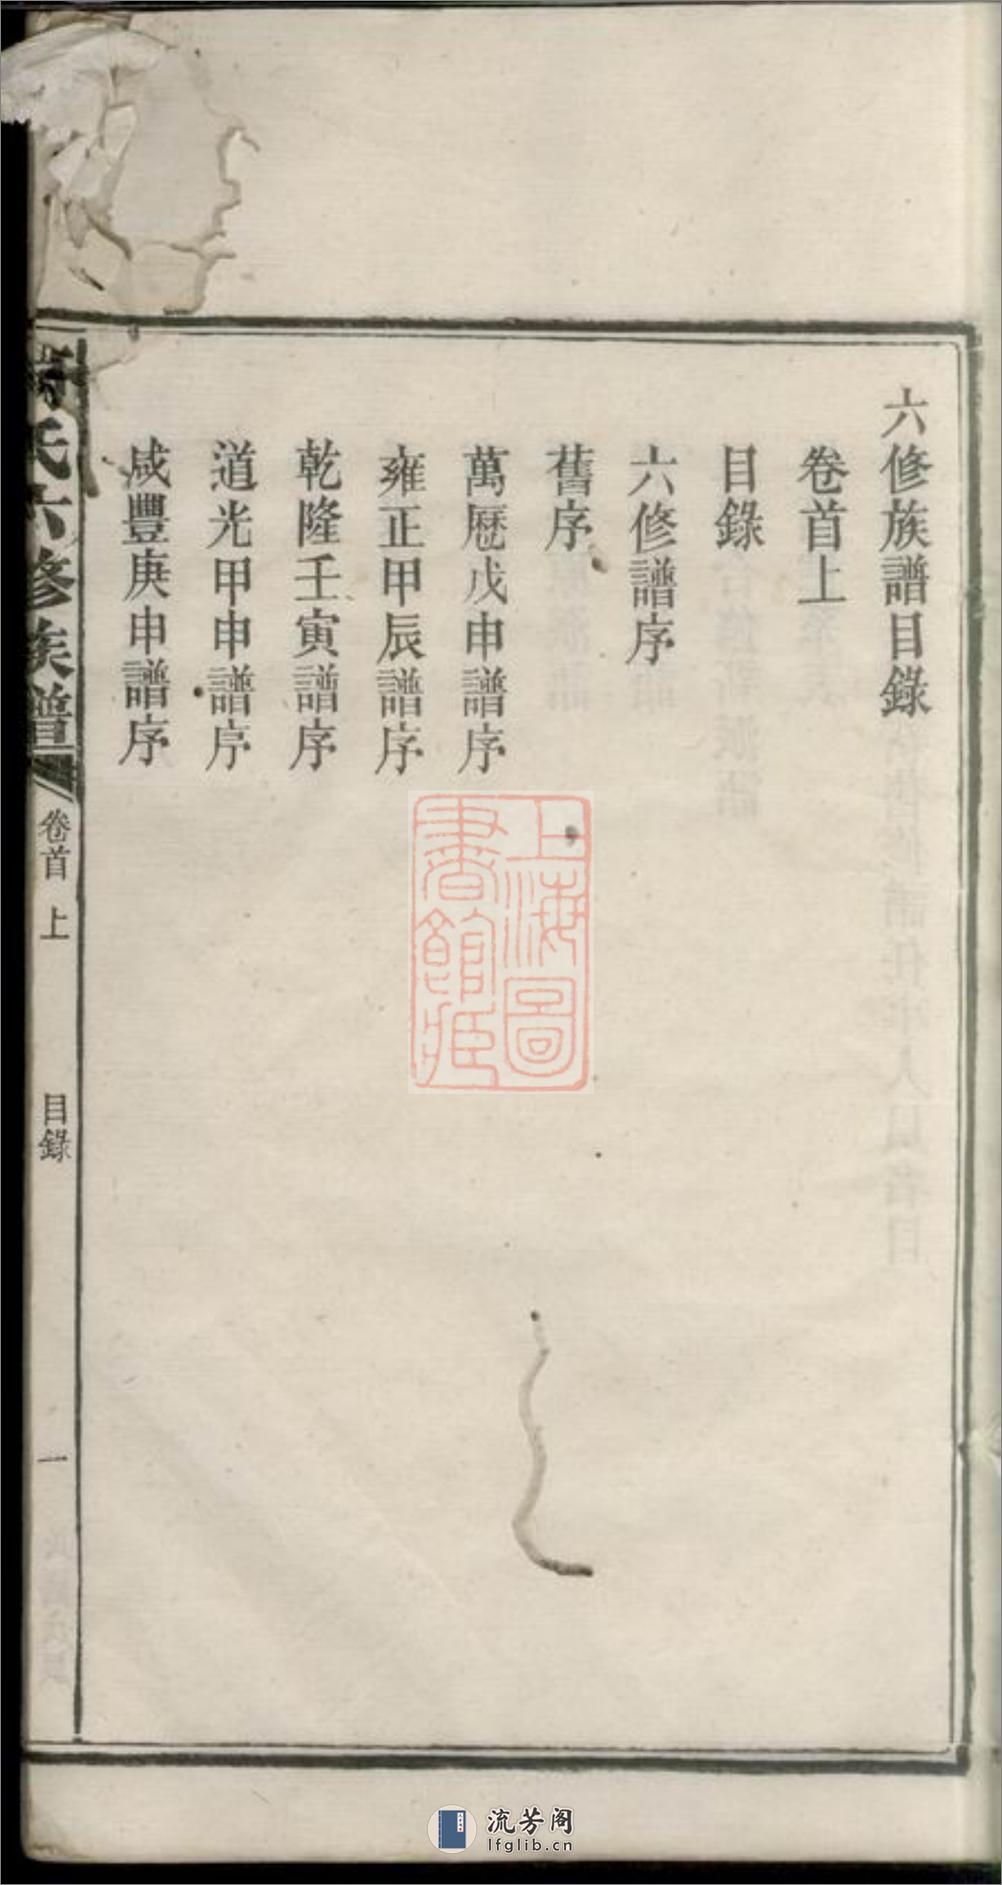 六修族譜目錄
卷首上
目錄
六修譜序
舊序
萬厯戊申譜序
雍正甲辰譜序
乾隆壬寅譜序
道光甲申譜序
咸豐庚申譜序
氏六修族譜
卷首上
目錄
一
上海圖
書館藏
流芳阁
lfglib.cn